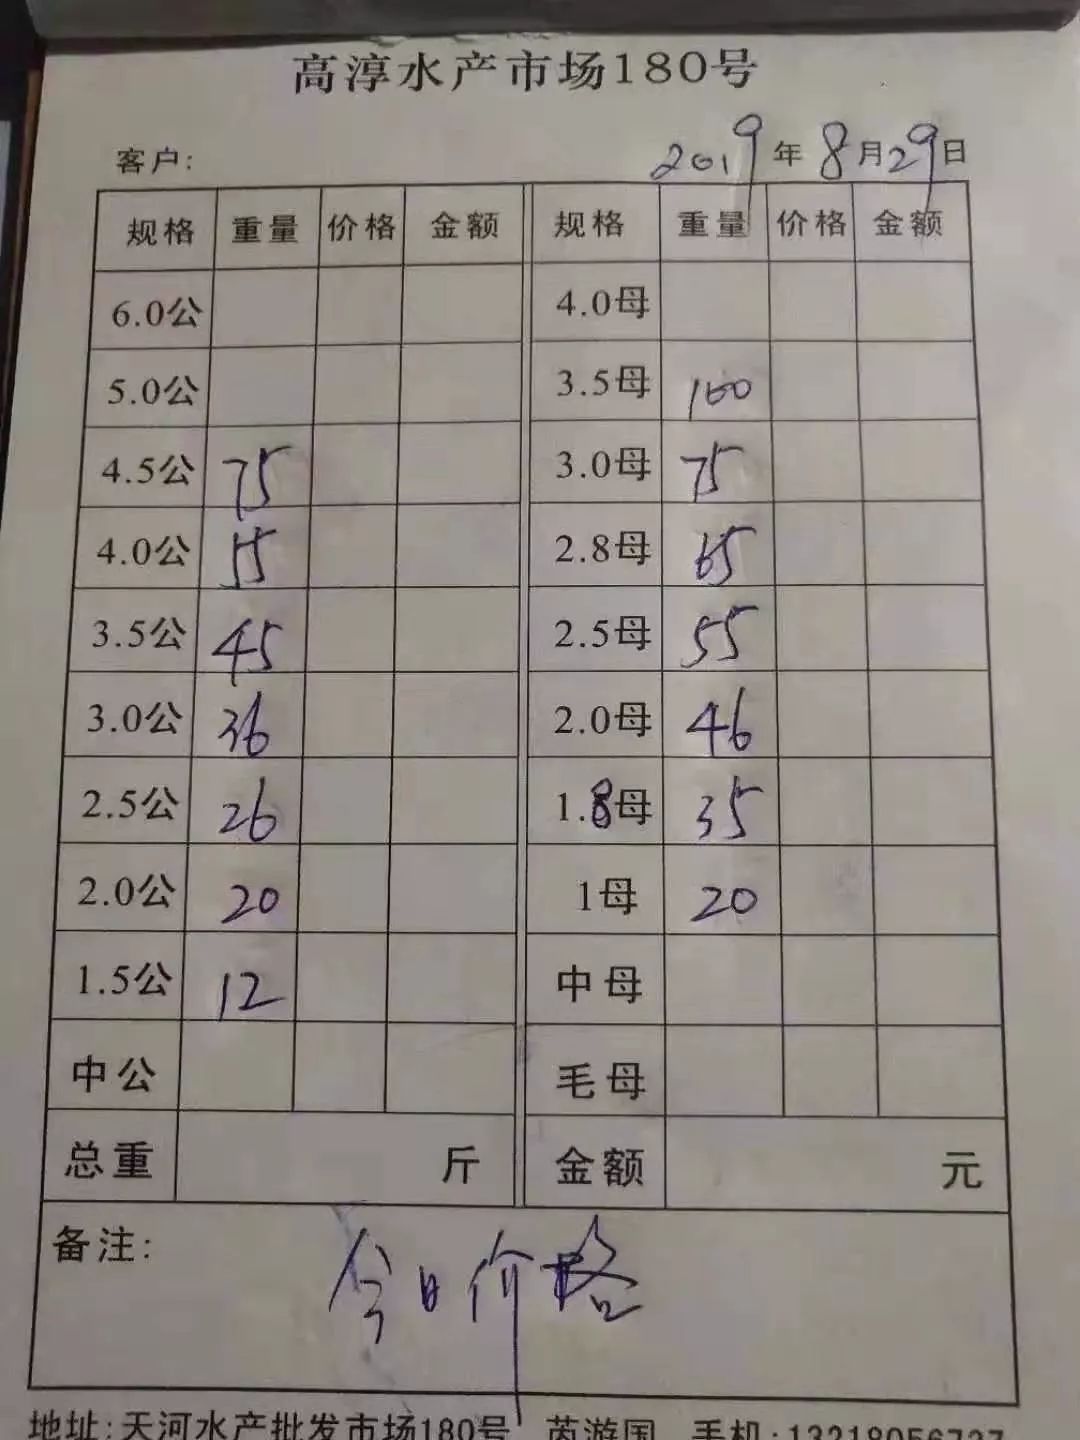 高淳水产市场180号
客户: 2019年8月29日
规格 重量 价格 金额 规格 重量 价格 金额
6.0公 4.0母
5.0公 3.5母 100
4.5公 75 3.0母 75
4.0公 55 2.8母 65
3.5公 45 2.5母 55
3.0公 36 2.0母 46
2.5公 26 1.8母 35
2.0公 20 1母 20
1.5公 12 中母
中公 毛母
总重 斤 金额 元
备注:
今日价格
地址:天河水产批发市场180号 芮游国 手机:13218056727